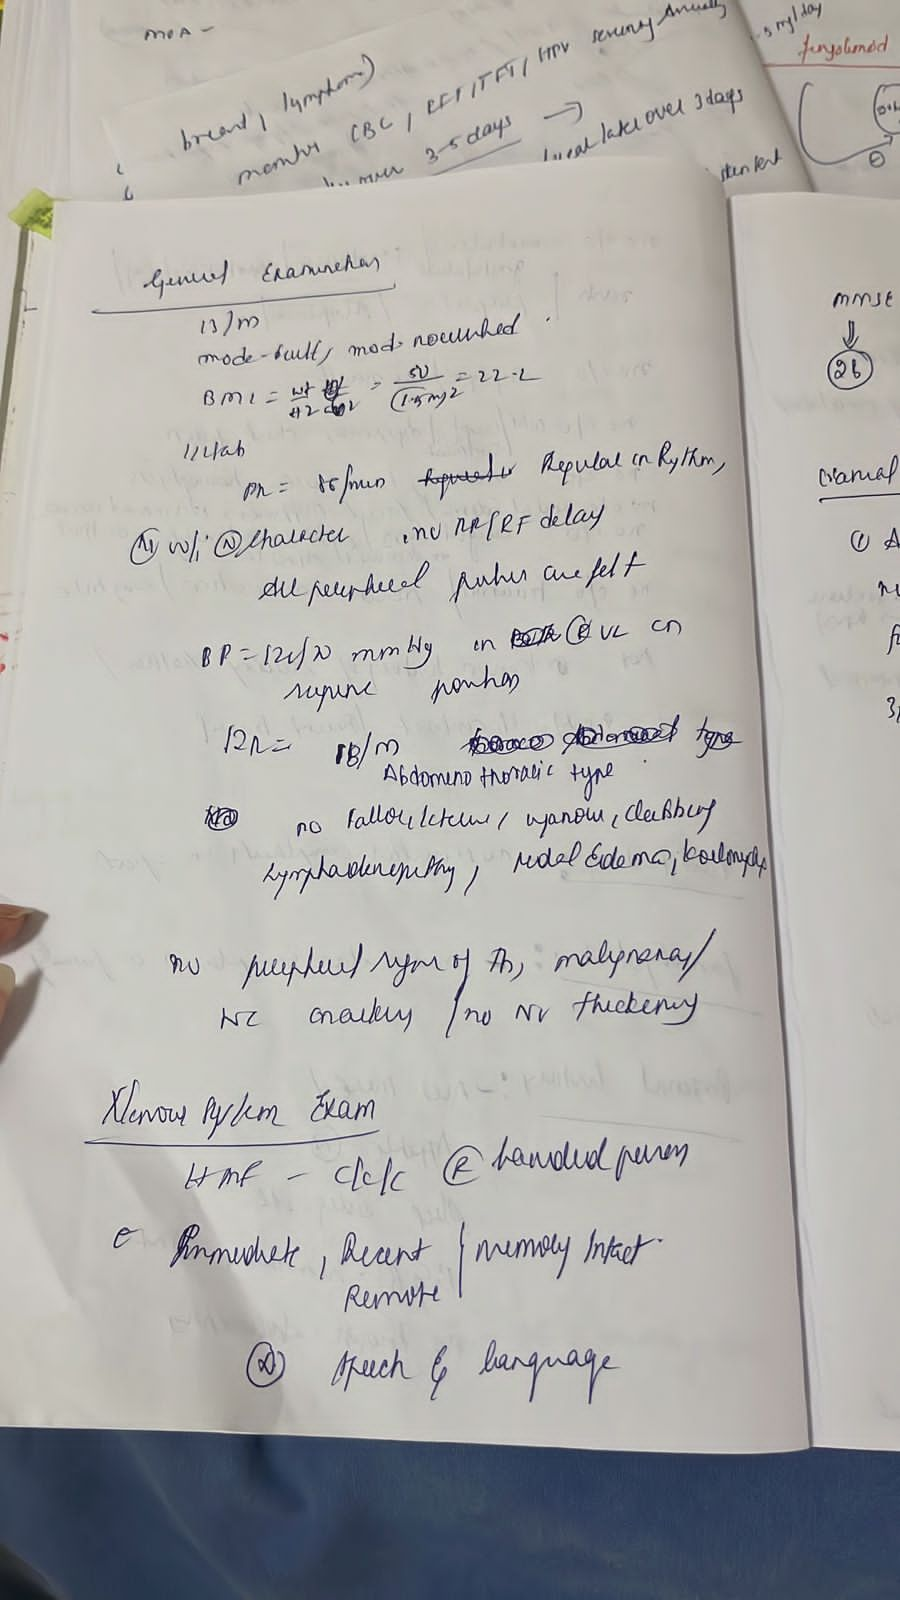 MOA -
breast, lymphoma)
monitor CBC, RFT, TFT, HPV screening Annually
3-5 days →
over 3 days
mg/day
fingolimod
General Examination
13/m
mode-built, mod. nourished.
BMI = wt/H2 = 50/(1.5m)2 = 22.2
Vitals
PR = 86/min Regular in Rythm,
(N) vol (N) Character, no RR/RF delay
All peripheral pulses are felt
BP = 120/70 mmHg in (R) UL in
supine position
RR = 18/m type
Abdomino thoracic type
no Pallor, Icterus, cyanosis, Clubbing
Lymphadenopathy, Pedal Edema, koilonychia
no peripheral signs of Tb, malignancy/
NC markers / no Nv thickening
Nervous System Exam
HMF - C/C/C (R) handed person
Immediate, Recent / memory Intact.
Remote
(N) Speech & language
MMSE
↓
26
Cranial
①